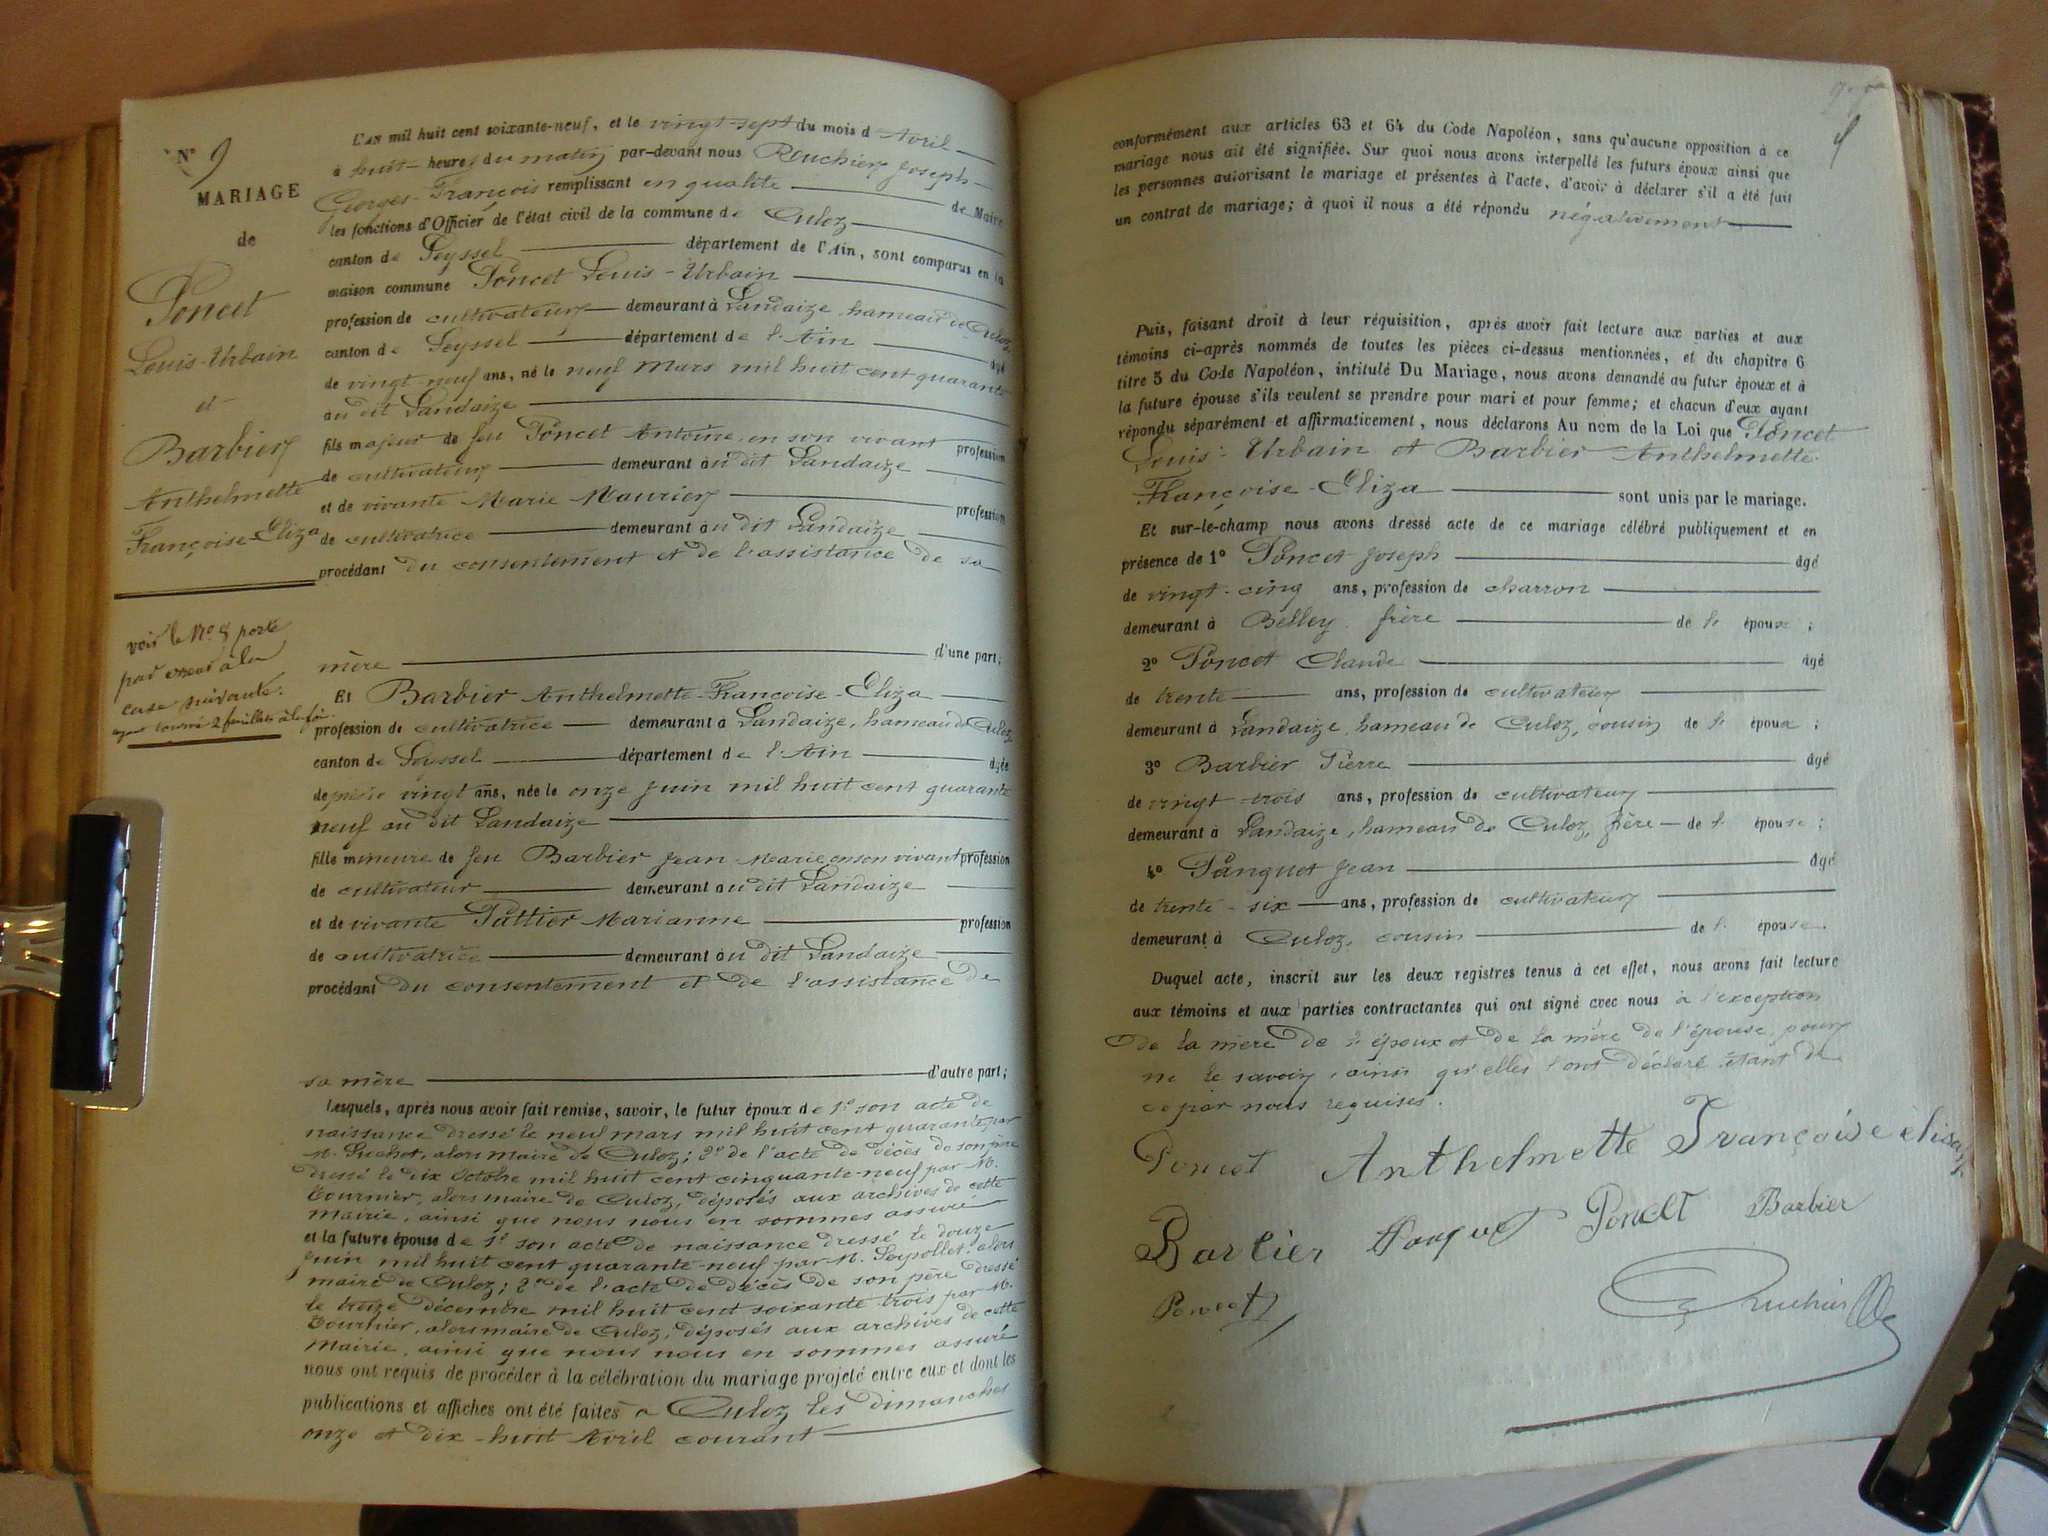 N° 9
MARIAGE
de
Poncet
Louis-Urbain
et
Barbier
Anthelmette
Françoise-Eliza
voir le No 8 porté
par erreur à la
case suivante.
ayant tourné 2 feuillets à la fois.
L'AN mil huit cent soixante-neuf, et le vingt-sept du mois d'Avril
à huit heures du matin par-devant nous Ruchier Joseph-
Georges-François remplissant en qualité de Maire
les fonctions d'Officier de l'état civil de la commune de Culoz
canton de Seyssel département de l'Ain, sont comparus en la
maison commune Poncet Louis-Urbain
profession de cultivateur demeurant à Landaize, hameau de Culoz,
canton de Seyssel département de l'Ain âgé
de vingt-neuf ans, né le neuf Mars mil huit cent quarante
au dit Landaize
fils majeur de feu Poncet Antoine, en son vivant profession
de cultivateur demeurant au dit Landaize
et de vivante Marie Maurier profession
de cultivatrice demeurant au dit Landaize
procédant du consentement et de l'assistance de sa
mère d'une part;
Et Barbier Anthelmette-Françoise-Eliza
profession de cultivatrice demeurant à Landaize, hameau de Culoz,
canton de Seyssel département de l'Ain âgée
de près de vingt ans, née le onze Juin mil huit cent quarante
neuf au dit Landaize
fille mineure de feu Barbier Jean-Marie en son vivant profession
de cultivateur demeurant au dit Landaize
et de vivante Pattier Marianne profession
de cultivatrice demeurant au dit Landaize
procédant du consentement et de l'assistance de
sa mère d'autre part;
Lesquels, après nous avoir fait remise, savoir, le futur époux de 1° son acte de
naissance dressé le neuf mars mil huit cent quarante par
M. Suchet, alors maire de Culoz; 2° de l'acte de décès de son père
dressé le dix Octobre mil huit cent cinquante-neuf par M.
Tournier, alors maire de Culoz, déposés aux archives de cette
mairie, ainsi que nous nous en sommes assuré
et la future épouse de 1° son acte de naissance dressé le douze
juin mil huit cent quarante-neuf par M. Serpollet, alors
maire de Culoz; 2° de l'acte de décès de son père dressé
le treize décembre mil huit cent soixante-trois par M.
Tournier, alors maire de Culoz, déposés aux archives de cette
mairie, ainsi que nous nous en sommes assuré
nous ont requis de procéder à la célébration du mariage projeté entre eux et dont les
publications et affiches ont été faites à Culoz les dimanches
onze et dix-huit Avril courant
conformément aux articles 63 et 64 du Code Napoléon, sans qu'aucune opposition à ce
mariage nous ait été signifiée. Sur quoi nous avons interpellé les futurs époux ainsi que
les personnes autorisant le mariage et présentes à l'acte, d'avoir à déclarer s'il a été fait
un contrat de mariage; à quoi il nous a été répondu négativement
Puis, faisant droit à leur réquisition, après avoir fait lecture aux parties et aux
témoins ci-après nommés de toutes les pièces ci-dessus mentionnées, et du chapitre 6
titre 5 du Code Napoléon, intitulé Du Mariage, nous avons demandé au futur époux et à
la future épouse s'ils veulent se prendre pour mari et pour femme; et chacun d'eux ayant
répondu séparément et affirmativement, nous déclarons Au nom de la Loi que Poncet
Louis-Urbain et Barbier Anthelmette-
Françoise-Eliza sont unis par le mariage.
Et sur-le-champ nous avons dressé acte de ce mariage célébré publiquement et en
présence de 1° Poncet Joseph âgé
de vingt-cinq ans, profession de charron
demeurant à Belley, frère de l' époux;
2° Poncet Claude âgé
de trente ans, profession de cultivateur
demeurant à Landaize, hameau de Culoz, cousin de l' époux;
3° Barbier Pierre âgé
de vingt-trois ans, profession de cultivateur
demeurant à Landaize, hameau de Culoz, frère de l' épouse;
4° Panguet Jean âgé
de trente-six ans, profession de cultivateur
demeurant à Culoz, cousin de l' épouse.
Duquel acte, inscrit sur les deux registres tenus à cet effet, nous avons fait lecture
aux témoins et aux parties contractantes qui ont signé avec nous à l'exception
de la mère de l'époux et de la mère de l'épouse, pour
ne le savoir, ainsi qu'elles l'ont déclaré étant de
ce par nous requises.
Poncet Anthelmette Françoise élisa
Barbier Panguet Poncet Barbier
Poncet Ruchier